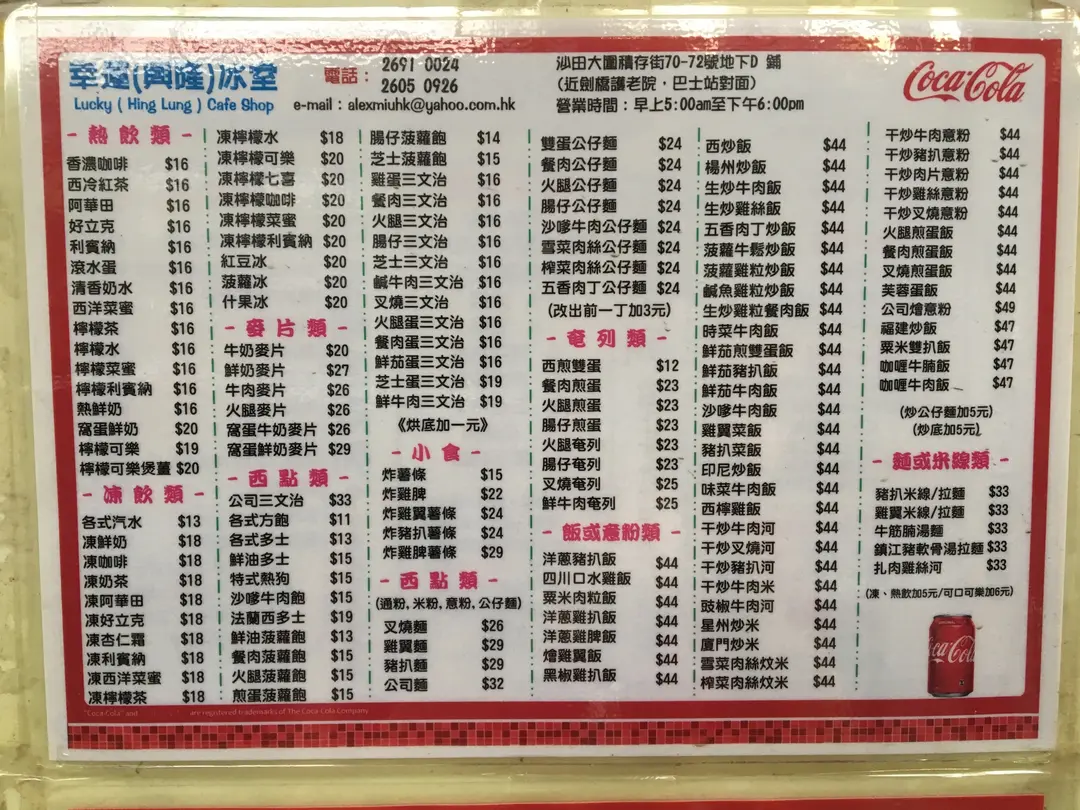 幸運(興隆)冰室
Lucky ( Hing Lung ) Cafe Shop
電話：
2691 0024
2605 0926
e-mail : alexmiuhk@yahoo.com.hk
沙田大圍積存街70-72號地下D 鋪
（近劍橋護老院，巴士站對面）
營業時間：早上5:00am至下午6:00pm
Coca-Cola
- 熱飲類 -
香濃咖啡 $16
西冷紅茶 $16
阿華田 $16
好立克 $16
利賓納 $16
滾水蛋 $16
清香奶水 $16
西洋菜蜜 $16
檸檬茶 $16
檸檬水 $16
檸檬菜蜜 $16
檸檬利賓納 $16
熱鮮奶 $16
窩蛋鮮奶 $20
檸檬可樂 $19
檸檬可樂煲薑 $20
- 凍飲類 -
各式汽水 $13
凍鮮奶 $18
凍咖啡 $18
凍奶茶 $18
凍阿華田 $18
凍好立克 $18
凍杏仁霜 $18
凍利賓納 $18
凍西洋菜蜜 $18
凍檸檬茶 $18
凍檸檬水 $18
凍檸檬可樂 $20
凍檸檬七喜 $20
凍檸檬咖啡 $20
凍檸檬菜蜜 $20
凍檸檬利賓納 $20
紅豆冰 $20
菠蘿冰 $20
什果冰 $20
- 麥片類 -
牛奶麥片 $20
鮮奶麥片 $27
牛肉麥片 $26
火腿麥片 $26
窩蛋牛奶麥片 $26
窩蛋鮮奶麥片 $29
- 西點類 -
公司三文治 $33
各式方飽 $11
各式多士 $13
鮮油多士 $15
特式熱狗 $15
沙嗲牛肉飽 $15
法蘭西多士 $19
鮮油菠蘿飽 $13
餐肉菠蘿飽 $15
火腿菠蘿飽 $15
煎蛋菠蘿飽 $15
腸仔菠蘿飽 $14
芝士菠蘿飽 $15
雞蛋三文治 $16
餐肉三文治 $16
火腿三文治 $16
腸仔三文治 $16
芝士三文治 $16
鹹牛肉三文治 $16
叉燒三文治 $16
火腿蛋三文治 $16
餐肉蛋三文治 $16
鮮茄蛋三文治 $16
芝士蛋三文治 $19
鮮牛肉三文治 $19
《烘底加一元》
- 小食 -
炸薯條 $15
炸雞脾 $22
炸雞翼薯條 $24
炸豬扒薯條 $24
炸雞脾薯條 $29
- 西點類 -
(通粉, 米粉, 意粉, 公仔麵)
叉燒麵 $26
雞翼麵 $29
豬扒麵 $29
公司麵 $32
雙蛋公仔麵 $24
餐肉公仔麵 $24
火腿公仔麵 $24
腸仔公仔麵 $24
沙嗲牛肉公仔麵 $24
雪菜肉絲公仔麵 $24
榨菜肉絲公仔麵 $24
五香肉丁公仔麵 $24
(改出前一丁加3元)
- 奄列類 -
西煎雙蛋 $12
餐肉煎蛋 $23
火腿煎蛋 $23
腸仔煎蛋 $23
火腿奄列 $23
腸仔奄列 $23
叉燒奄列 $25
鮮牛肉奄列 $25
- 飯或意粉類 -
洋蔥豬扒飯 $44
四川口水雞飯 $44
粟米肉粒飯 $44
洋蔥雞扒飯 $44
洋蔥雞脾飯 $44
燴雞翼飯 $44
黑椒雞扒飯 $44
西炒飯 $44
楊州炒飯 $44
生炒牛肉飯 $44
生炒雞絲飯 $44
五香肉丁炒飯 $44
菠蘿牛鬆炒飯 $44
菠蘿雞粒炒飯 $44
鹹魚雞粒炒飯 $44
生炒雞粒餐肉飯 $44
時菜牛肉飯 $44
鮮茄煎雙蛋飯 $44
鮮茄豬扒飯 $44
鮮茄牛肉飯 $44
沙嗲牛肉飯 $44
雞翼菜飯 $44
豬扒菜飯 $44
印尼炒飯 $44
味菜牛肉飯 $44
西檸雞飯 $44
干炒牛肉河 $44
干炒叉燒河 $44
干炒豬扒河 $44
干炒牛肉米 $44
豉椒牛肉河 $44
星州炒米 $44
廈門炒米 $44
雪菜肉絲炆米 $44
榨菜肉絲炆米 $44
干炒牛肉意粉 $44
干炒豬扒意粉 $44
干炒肉片意粉 $44
干炒雞絲意粉 $44
干炒叉燒意粉 $44
火腿煎蛋飯 $44
餐肉煎蛋飯 $44
叉燒煎蛋飯 $44
芙蓉蛋飯 $44
公司燴意粉 $49
福建炒飯 $47
粟米雙扒飯 $47
咖喱牛腩飯 $47
咖喱牛肉飯 $47
(炒公仔麵加5元)
(炒底加5元)
- 麵或米線類 -
豬扒米線/拉麵 $33
雞翼米線/拉麵 $33
牛筋腩湯麵 $33
鎮江豬軟骨湯拉麵 $33
扎肉雞絲河 $33
(凍、熱飲加5元/可口可樂加6元)
"Coca-Cola" and are registered trademarks of The Coca-Cola Company